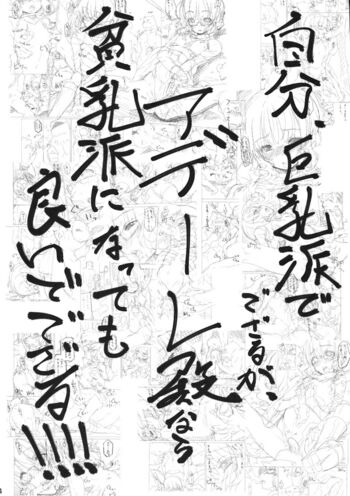 自分、巨乳派で
ござるが、
アデーレ殿なら
貧乳派になっても
良いでござる!!!!!